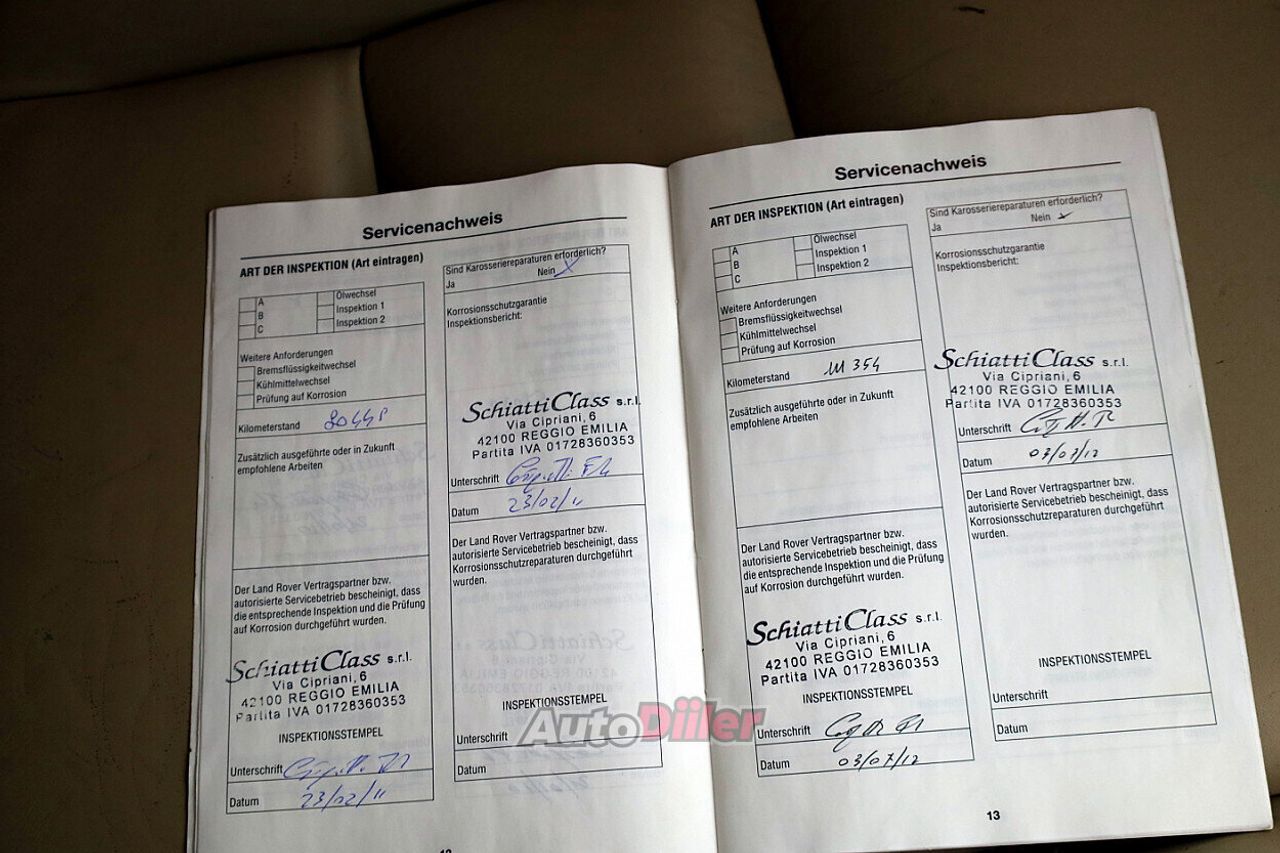 Servicenachweis
ART DER INSPEKTION (Art eintragen)
A
B
C
Ölwechsel
Inspektion 1
Inspektion 2
Weitere Anforderungen
Bremsflüssigkeitwechsel
Kühlmittelwechsel
Prüfung auf Korrosion
Kilometerstand
Zusätzlich ausgeführte oder in Zukunft
empfohlene Arbeiten
Der Land Rover Vertragspartner bzw.
autorisierte Servicebetrieb bescheinigt, dass
die entsprechende Inspektion und die Prüfung
auf Korrosion durchgeführt wurden.
Schiatti Class s.r.l.
Via Cipriani, 6
42100 REGGIO EMILIA
Partita IVA 01728360353
INSPEKTIONSSTEMPEL
Unterschrift
Datum 23/02/11
Sind Karosseriereparaturen erforderlich?
Ja Nein
Korrosionsschutzgarantie
Inspektionsbericht:
Schiatti Class s.r.l.
Via Cipriani, 6
42100 REGGIO EMILIA
Partita IVA 01728360353
Unterschrift
Datum 23/02/11
Der Land Rover Vertragspartner bzw.
autorisierte Servicebetrieb bescheinigt, dass
Korrosionsschutzreparaturen durchgeführt
wurden.
INSPEKTIONSSTEMPEL
Unterschrift
Datum
Servicenachweis
ART DER INSPEKTION (Art eintragen)
A
B
C
Ölwechsel
Inspektion 1
Inspektion 2
Weitere Anforderungen
Bremsflüssigkeitwechsel
Kühlmittelwechsel
Prüfung auf Korrosion
Kilometerstand 111 354
Zusätzlich ausgeführte oder in Zukunft
empfohlene Arbeiten
Der Land Rover Vertragspartner bzw.
autorisierte Servicebetrieb bescheinigt, dass
die entsprechende Inspektion und die Prüfung
auf Korrosion durchgeführt wurden.
Schiatti Class s.r.l.
Via Cipriani, 6
42100 REGGIO EMILIA
Partita IVA 01728360353
INSPEKTIONSSTEMPEL
Unterschrift
Datum 03/07/12
Sind Karosseriereparaturen erforderlich?
Ja Nein
Korrosionsschutzgarantie
Inspektionsbericht:
Schiatti Class s.r.l.
Via Cipriani, 6
42100 REGGIO EMILIA
Partita IVA 01728360353
Unterschrift
Datum 03/07/12
Der Land Rover Vertragspartner bzw.
autorisierte Servicebetrieb bescheinigt, dass
Korrosionsschutzreparaturen durchgeführt
wurden.
INSPEKTIONSSTEMPEL
Unterschrift
Datum
13
AutoDiiler